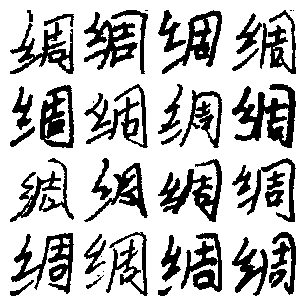 绸绸绸绸
绸绸绸绸
绸绸绸绸
绸绸绸绸